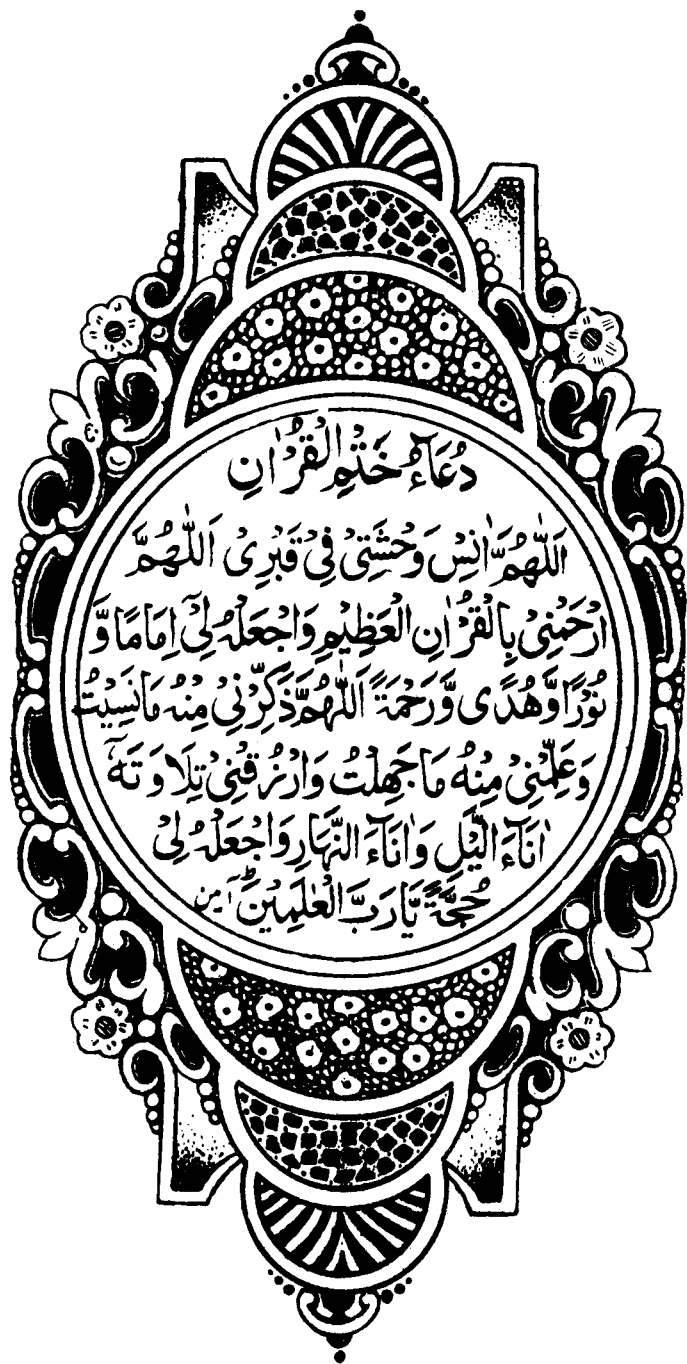 دُعَآءُ خَتْمِ الْقُرْاٰنِ
اَللّٰهُمَّ اٰنِسْ وَحْشَتِیْ فِیْ قَبْرِیْ اَللّٰهُمَّ
ارْحَمْنِیْ بِالْقُرْاٰنِ الْعَظِیْمِ وَاجْعَلْهُ لِیْٓ اِمَامًا وَّ
نُوْرًا وَّهُدًی وَّرَحْمَةً اَللّٰهُمَّ ذَكِّرْنِیْ مِنْهُ مَا نَسِیْتُ
وَعَلِّمْنِیْ مِنْهُ مَا جَهِلْتُ وَارْزُقْنِیْ تِلَاوَتَهٗٓ
اٰنَآءَ الَّیْلِ وَاٰنَآءَ النَّهَارِ وَاجْعَلْهُ لِیْ
حُجَّةً یَّا رَبَّ الْعٰلَمِیْنَ ؕ اٰمین